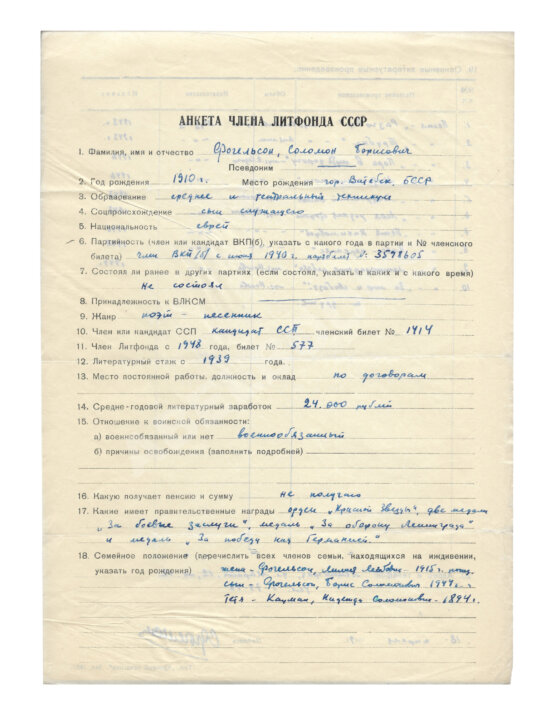 АНКЕТА ЧЛЕНА ЛИТФОНДА СССР
1. Фамилия, имя и отчество Фогельсон, Соломон Борисович
Псевдоним
2. Год рождения 1910 г. Место рождения гор. Витебск, БССР
3. Образование среднее и театральный техникум
4. Соцпроисхождение сын служащего
5. Национальность еврей
6. Партийность (член или кандидат ВКП(б), указать с какого года в партии и № членского
билета) член ВКП(б) с июня 1940 г. партбилет № 3598605
7. Состоял ли ранее в других партиях (если состоял, указать в каких и с какого время)
не состоял
8. Принадлежность к ВЛКСМ
9. Жанр поэт - песенник
10. Член или кандидат ССП кандидат ССП членский билет № 1414
11. Член Литфонда с 1948 года, билет № 577
12. Литературный стаж с 1939 года.
13. Место постоянной работы, должность и оклад по договорам
14. Средне-годовой литературный заработок 24.000 рублей
15. Отношение к воинской обязанности:
а) военнообязанный или нет военнообязанный
б) причины освобождения (заполнить подробней)
16. Какую получает пенсию и сумму не получаю
17. Какие имеет правительственные награды орден „Красной Звезды", две медали
„За боевые заслуги", медаль „За оборону Ленинграда"
и медаль „За победу над Германией."
18. Семейное положение (перечислить всех членов семьи, находящихся на иждивении,
указать год рождения) жена - Фогельсон, 1915 г.
сын - Фогельсон, Борис Соломонович
Тетя - Кацман, Надежда Соломоновна - 1894 г.